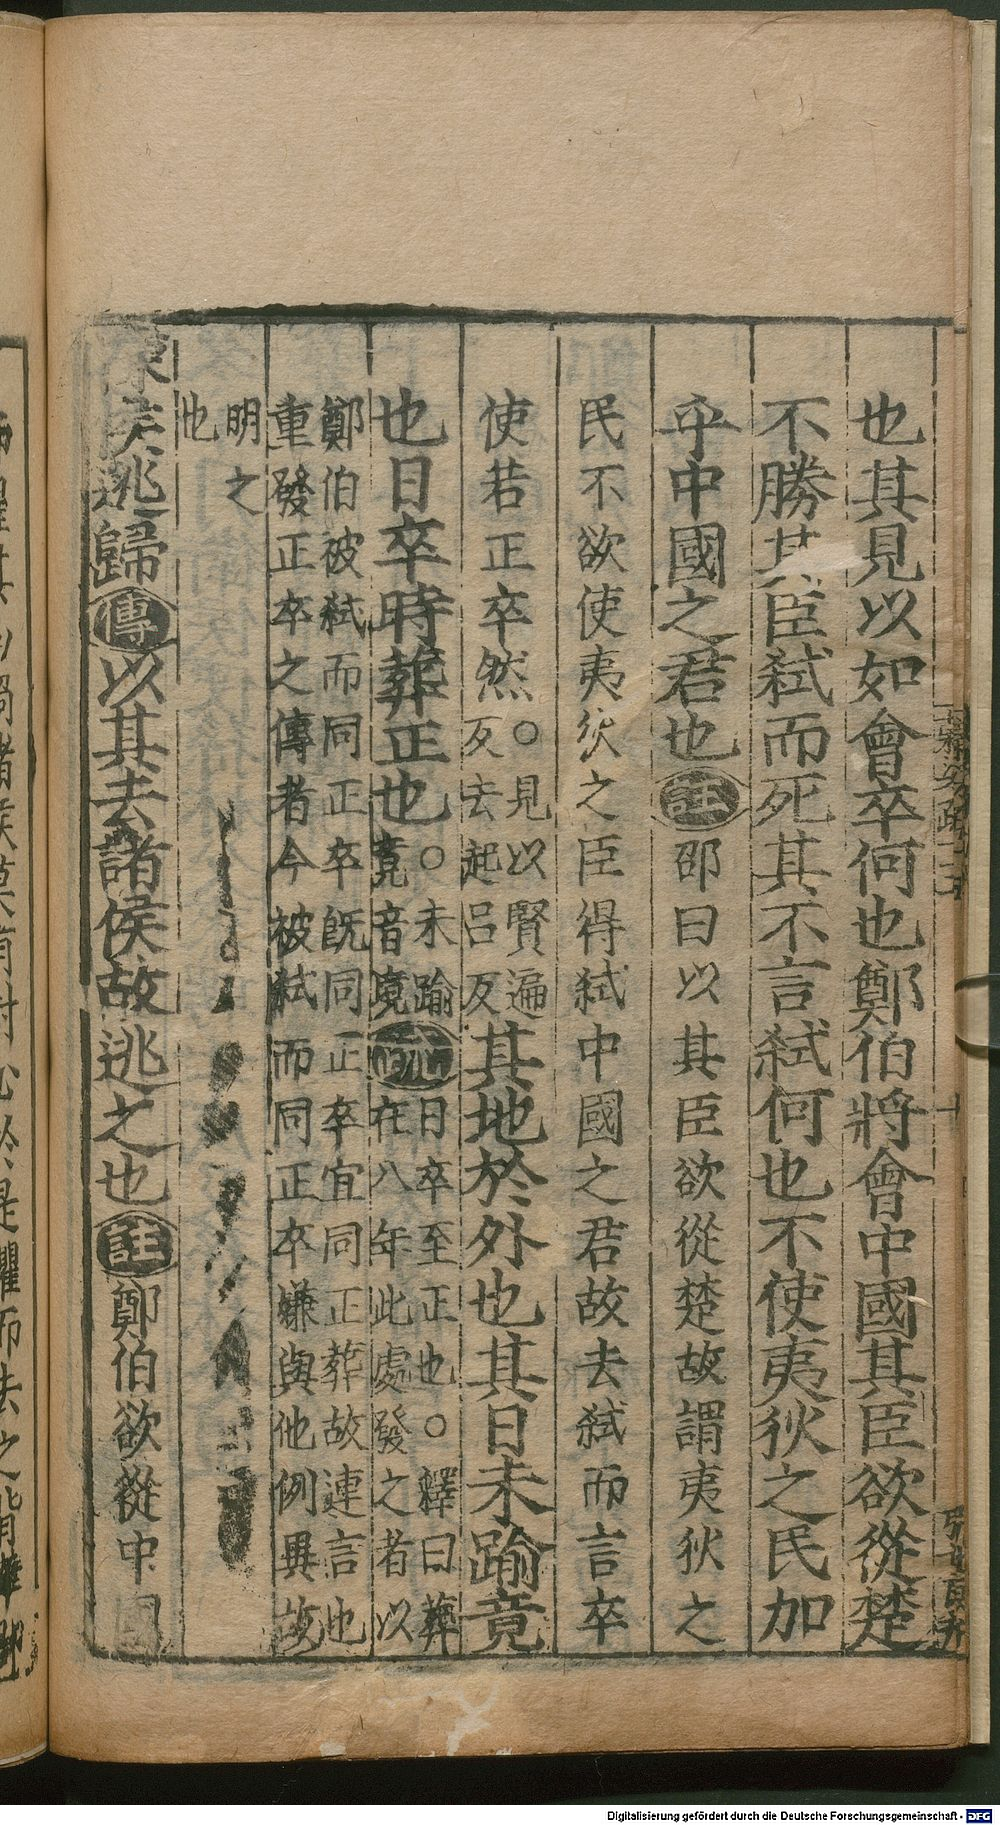 也其見以如會卒何也鄭伯將會中國其臣欲從楚
不勝其臣弑而死其不言弑何也不使夷狄之民加
乎中國之君也註邵曰以其臣欲從楚故謂夷狄之
民不欲使夷狄之臣得弑中國之君故去弑而言卒
使若正卒然○見以賢遍
反去起呂反其地於外也其日未踰竟
也日卒時葬正也○未踰
竟音境疏日卒至正也○釋曰葬
在八年此處發之者以
鄭伯被弑而同正卒既同正卒宜同正葬故連言也
重發正卒之傳者今被弑而同正卒嫌與他例異故
明之
也
陳侯逃歸傳以其去諸侯故逃之也註鄭伯欲從中國
Digitalisierung gefördert durch die Deutsche Forschungsgemeinschaft - DFG